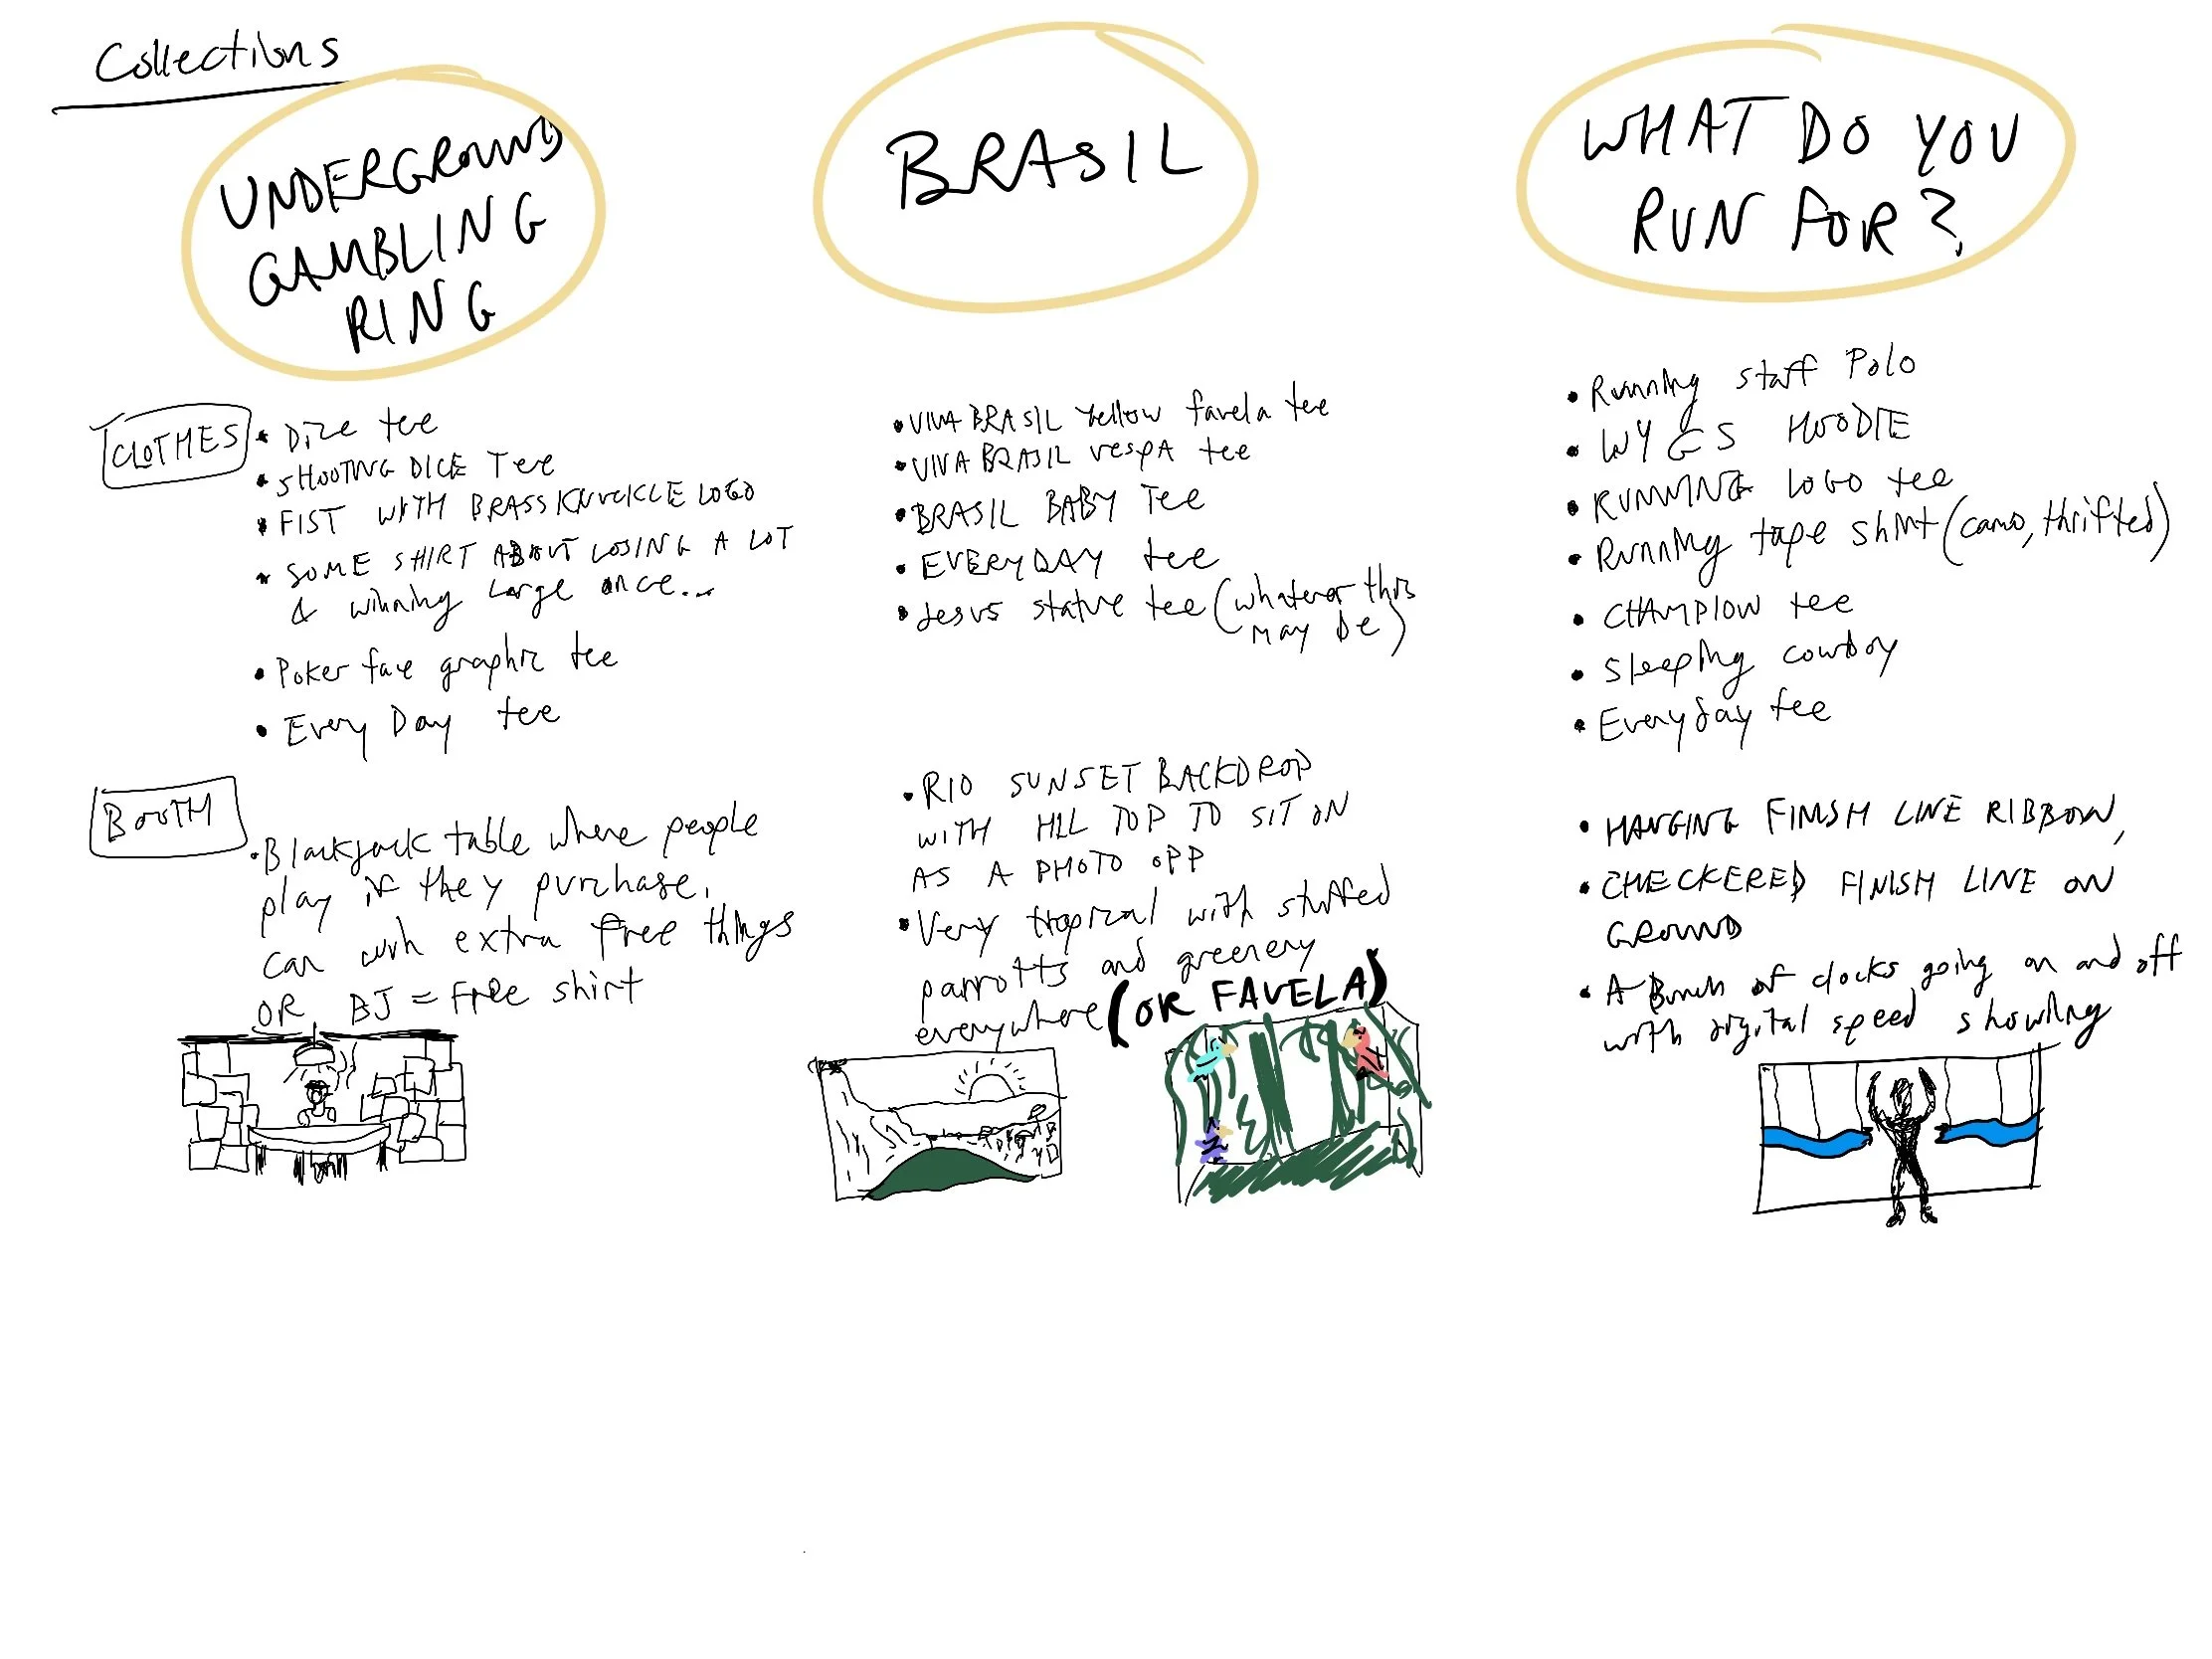 Collections
UNDERGROUND
GAMBLING
RING
CLOTHES
• Dice tee
• SHOOTING DICE Tee
• FIST WITH BRASSKNUCKLE LOGO
• SOME SHIRT ABOUT LOSING A LOT
& winning Large once...
• Poker face graphic tee
• Every Day tee
BOOTH
• Blackjack table where people
play if they purchase.
can win extra free things
OR BJ = Free shirt
BRASIL
• VIVA BRASIL Yellow favela tee
• VIVA BRASIL vespA tee
• BRASIL BABY Tee
• EVERYDAY tee
• Jesus statue tee (whatever this
may be)
• RIO SUNSET BACKDROP
WITH HILL TOP TO SIT ON
AS A PHOTO OPP
• Very tropical with stuffed
parrotts and greenery
everywhere (OR FAVELA)
WHAT DO YOU
RUN FOR?
• Running staff Polo
• WYGS HOODIE
• RUNNING LOGO tee
• Running tape shirt (camo, thrifted)
• CHAMPION tee
• Sleeping cowboy
• Everyday tee
• HANGING FINISH LINE RIBBON,
• CHECKERED FINISH LINE ON
GROUND
• A Bunch of clocks going on and off
with digital speed showing